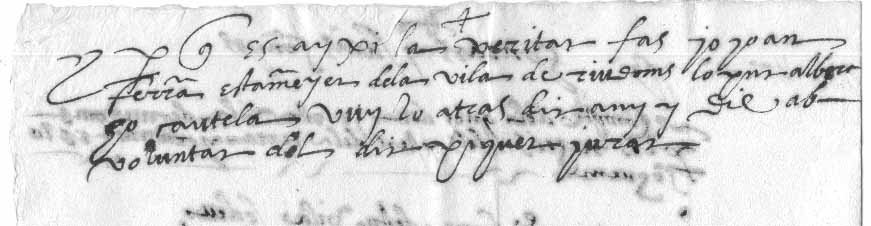 P q es axi la veritat fas jo joan
ferrã estameñyer dela vila de riudoms lo pnt albara
so cautela vuy lo atras dit any y die ab
voluntat del dit piquer jurat